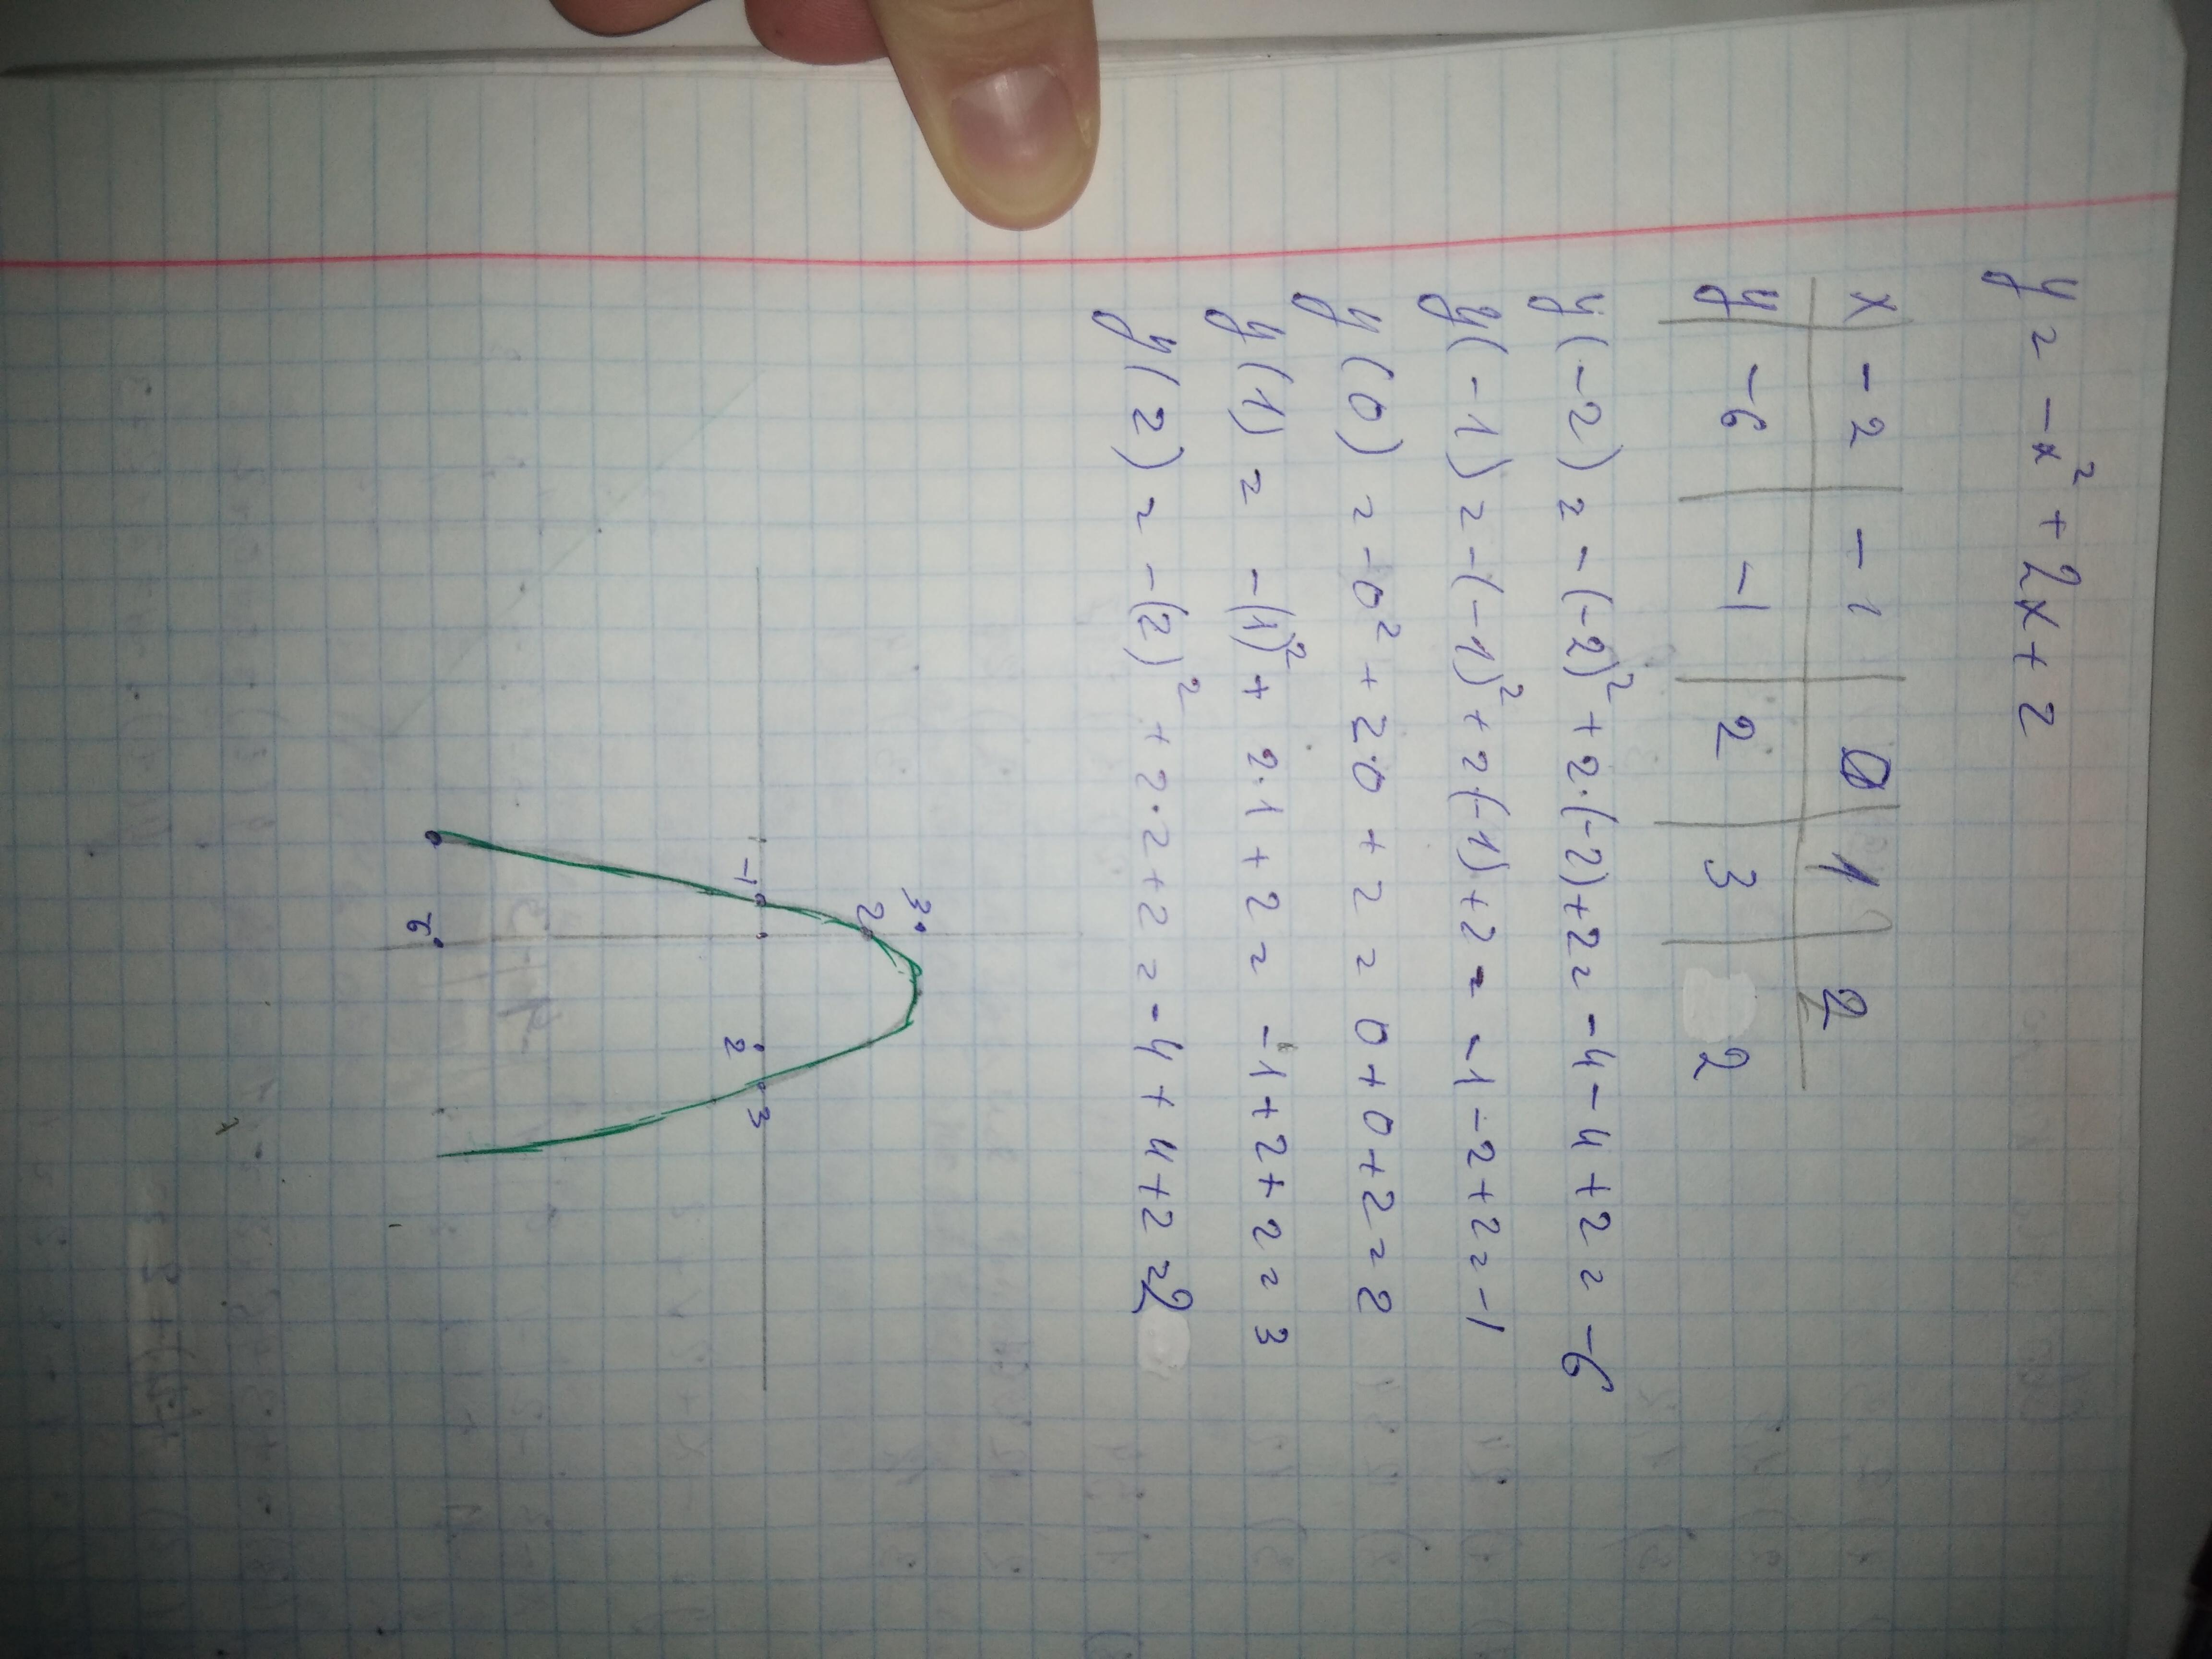 y = -x² + 2x + 2
x -2 -1 0 1 2
y -6 -1 2 3 2
y(-2) = -(-2)² + 2·(-2)+2 = -4-4+2 = -6
y(-1) = -(-1)² + 2·(-1)+2 = -1-2+2 = -1
y(0) = -0² + 2·0 + 2 = 0+0+2 = 2
y(1) = -(1)² + 2·1 + 2 = -1+2+2 = 3
y(2) = -(2)² + 2·2+2 = -4+4+2 = 2
3
2
-1 2 3